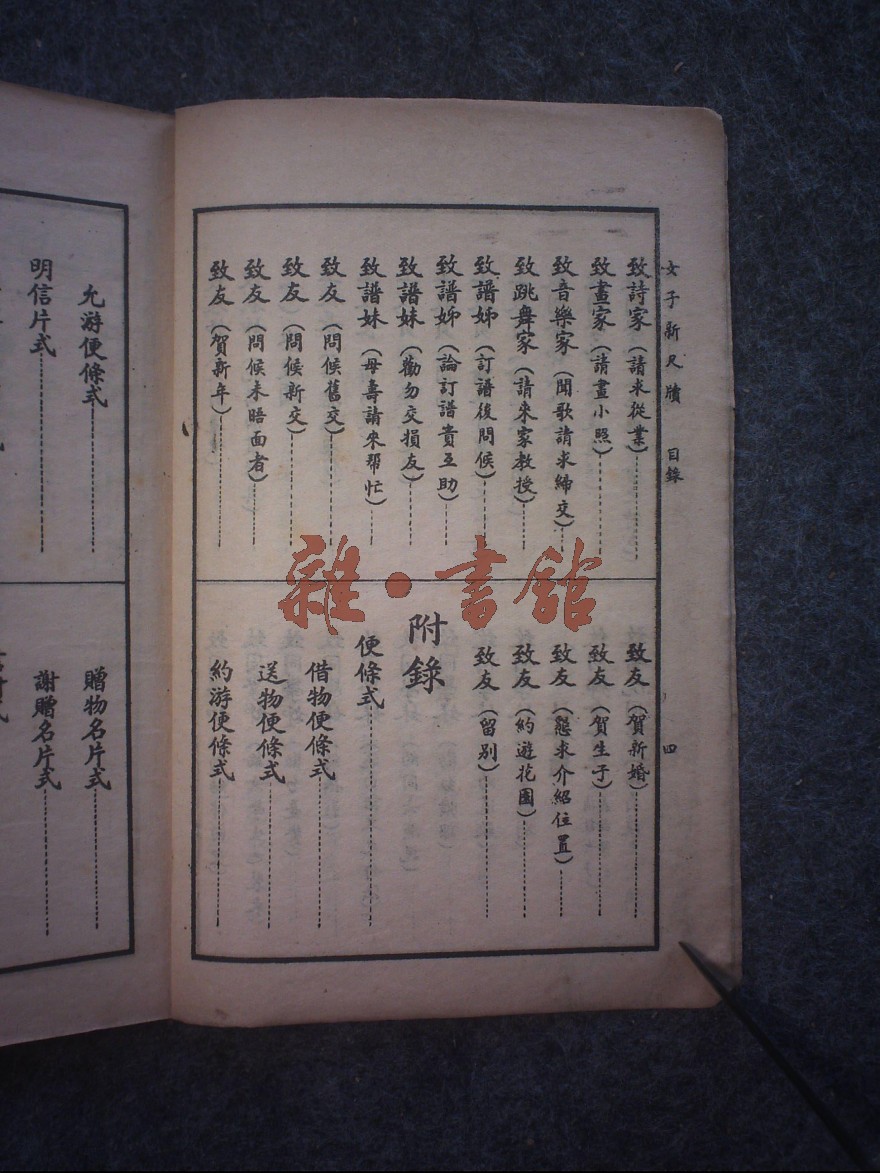 女子新尺牘 目錄 四
致詩家（請求從業）
致畫家（請畫小照）
致音樂家（聞歌請求締交）
致跳舞家（請來家教授）
致譜姊（訂譜後問候）
致譜姊（論訂譜貴互助）
致譜妹（勸勿交損友）
致譜妹（母壽請來帮忙）
致友（問候舊交）
致友（問候新交）
致友（問候未晤面者）
致友（賀新年）
致友（賀新婚）
致友（賀生子）
致友（懇求介紹位置）
致友（約遊花園）
致友（留別）
附錄
便條式
借物便條式
送物便條式
約游便條式
允游便條式
明信片式
贈物名片式
謝贈名片式
雜·書館